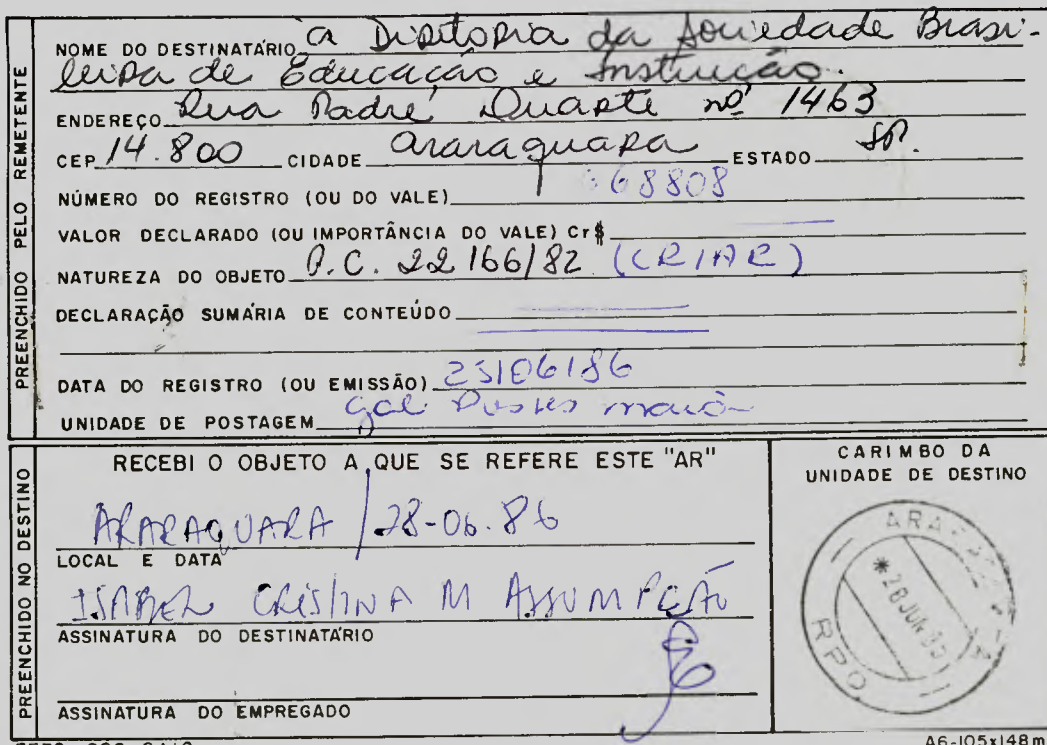 PREENCHIDO PELO REMETENTE
NOME DO DESTINATÁRIO à Diretoria da Sociedade Brasi-
leira de Educação e Instrução.
ENDEREÇO Rua Padre Duarte nº 1463
CEP 14.800 CIDADE Araraquara ESTADO SP.
NÚMERO DO REGISTRO (OU DO VALE) 68808
VALOR DECLARADO (OU IMPORTÂNCIA DO VALE) Cr$
NATUREZA DO OBJETO P.C. 22166/82 (CRIAR)
DECLARAÇÃO SUMÁRIA DE CONTEÚDO
DATA DO REGISTRO (OU EMISSÃO) 25/06/86
UNIDADE DE POSTAGEM
PREENCHIDO NO DESTINO
RECEBI O OBJETO A QUE SE REFERE ESTE "AR"
ARARAQUARA / 28-06.86
LOCAL E DATA
ISABEL CRISTINA M ASSUMPÇÃO
ASSINATURA DO DESTINATÁRIO
ASSINATURA DO EMPREGADO
CARIMBO DA
UNIDADE DE DESTINO
RPO
A6-105x148m